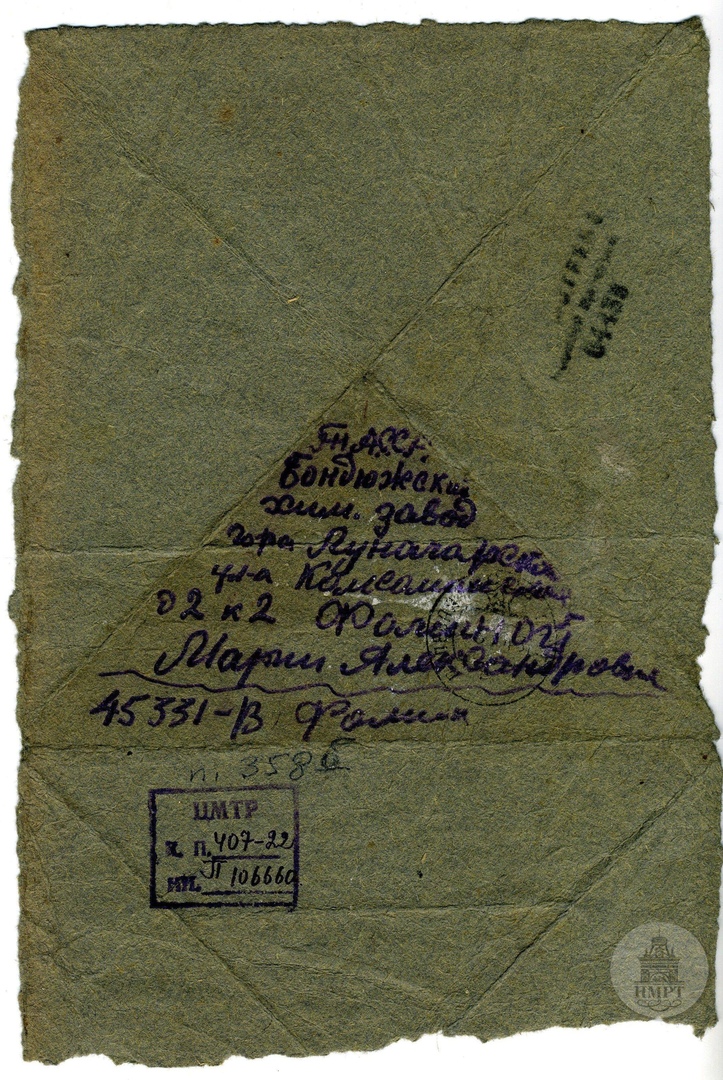 04438
Тн АССР.
Бондюжский
хим. завод
гора Луначарска
ул-а Камсомльская
д 2 к 2 Фоминой
Марии Александровы
45331-В Фомин
п. 358б
ЦМТР
К. П. 407-22
ИН. П 106660
НМРТ